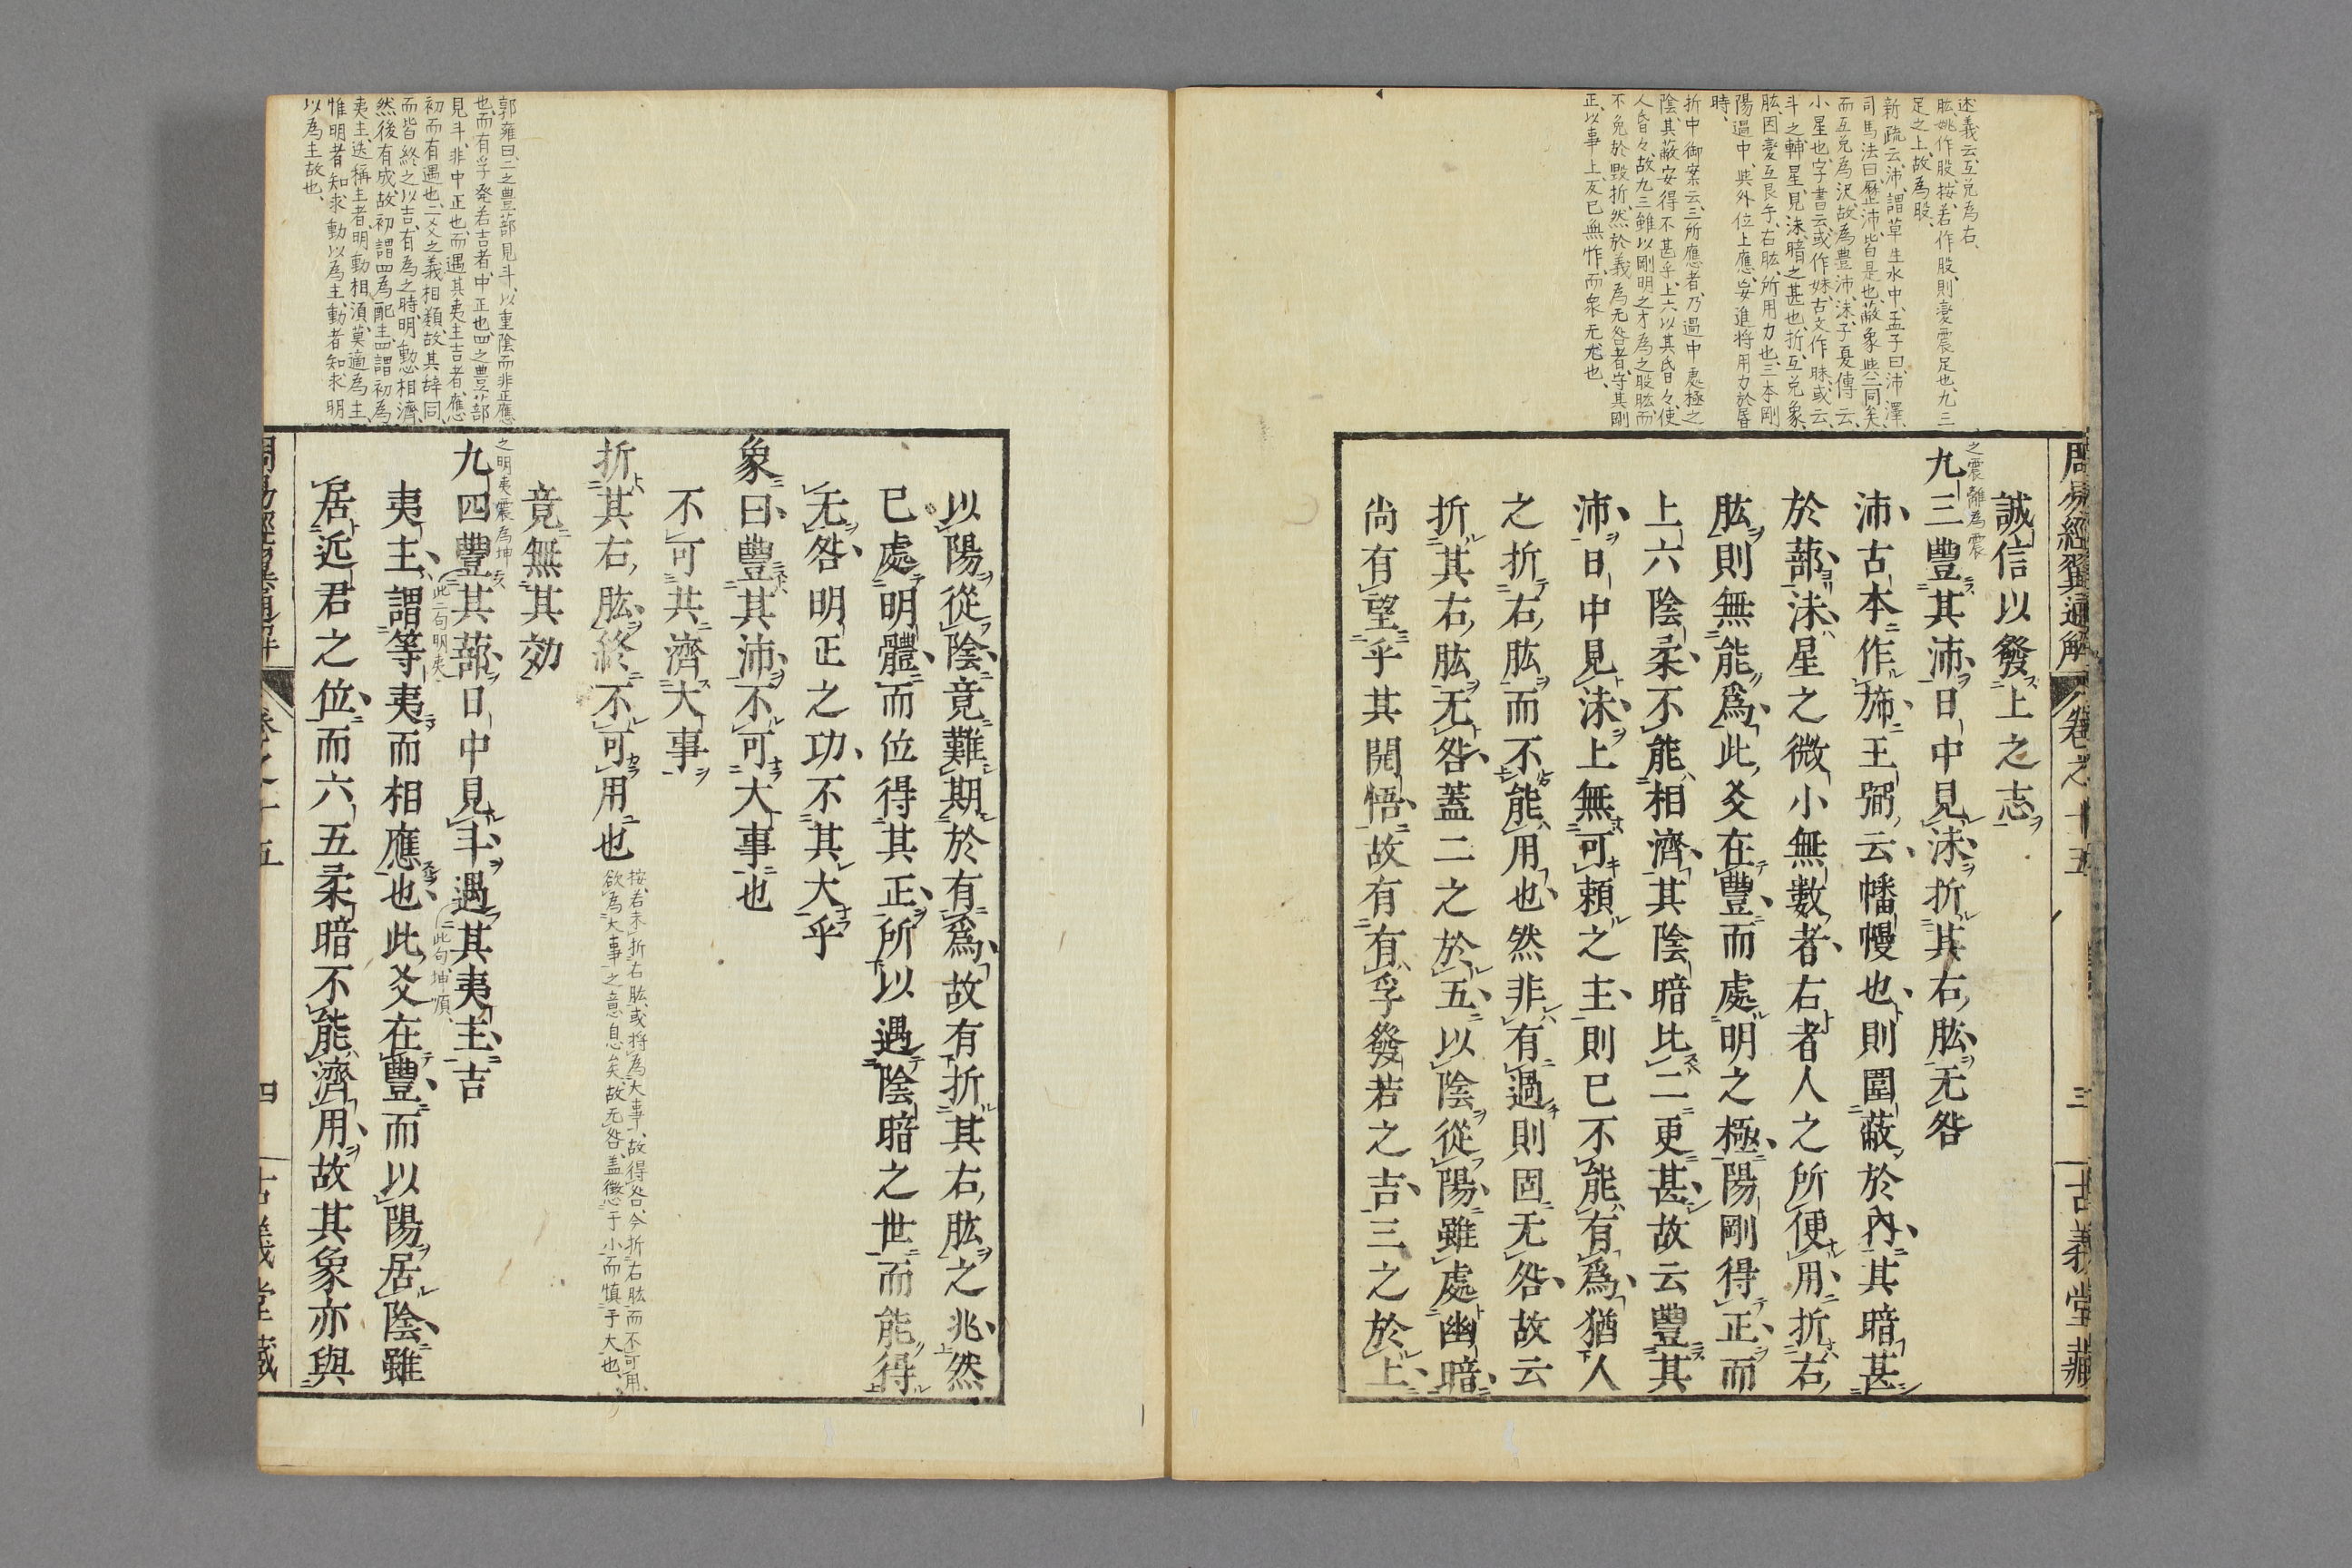 周易經翼通解 卷之十五 三 古義堂藏
述義云、互兌為右、
肱、姚作股、按、若作股、則變震足也、九三
足之上、故為股、
新疏云、沛、謂草生水中、孟子曰、沛澤、
司馬法曰、歷沛、皆是也、蔽象與二同矣、
而互兌為沢、故為豊沛、沬、子夏傳云、
小星也、字書云、或作妹、古文作昧、或云、
斗之輔星、見沬、暗之甚也、折、互兌象、
肱、因變互艮手、右肱、所用力也、三本剛
陽過中、與外位上應、妄進将用力於昬
時、
折中御案云、三所應者、乃過中處極之
陰、其蔽安得不甚乎、上六以其昏々、使
人昏々、故九三雖以剛明之才為之股肱、而
不免於毀折、然於義為无咎者、守其剛
正、以事上、反已無怍、而衆无尤也、
誠信以發上之志
九三豐其沛日中見沬折其右肱无咎
之震離為震
沛古本作旆王弼云幡幔也則圍蔽於內其暗甚
於蔀沬星之微小無數者右者人之所便用折右
肱則無能爲此爻在豐而處明之極陽剛得正而
上六陰柔不能相濟其陰暗比二更甚故云豐其
沛日中見沬上無可頼之主則已不能有爲猶人
之折右肱而不能用也然非有過則固无咎故云
折其右肱无咎蓋二之於五以陰從陽雖處幽暗
尚有望乎其開悟故有有孚發若之吉三之於上
以陽從陰竟難期於有爲故有折其右肱之兆然
已處明體而位得其正所以遇陰暗之世而能得
无咎明正之功不其大乎
象曰豐其沛不可大事也
不可共濟大事
折其右肱終不可用也
按、若未折右肱、或将為大事、故得咎、今折右肱而不可用、
欲為大事之意息矣、故无咎、盖懲于小而慎于大也、
竟無其効
郭雍曰、二之豊蔀見斗、以重陰而非正應
也、而有孚発若吉者、中正也、四之豊蔀
見斗、非中正也、而遇其夷主吉者、應
初而有遇也、二爻之義相類、故其辞同、
而皆終之以吉、有為之時、明動相濟、
然後有成、故初謂四為配主、四謂初為
夷主、迭稱主者、明動相須、莫適為主、
惟明者知求動以為主、動者知求明
以為主故也、
之明夷震為坤
九四豐其蔀日中見斗遇其夷主吉
此二句明夷
此句坤順、
夷主謂等夷而相應也此爻在豐而以陽居陰雖
居近君之位而六五柔暗不能濟用故其象亦與
周易經翼通解 卷之十五 四 古義堂藏